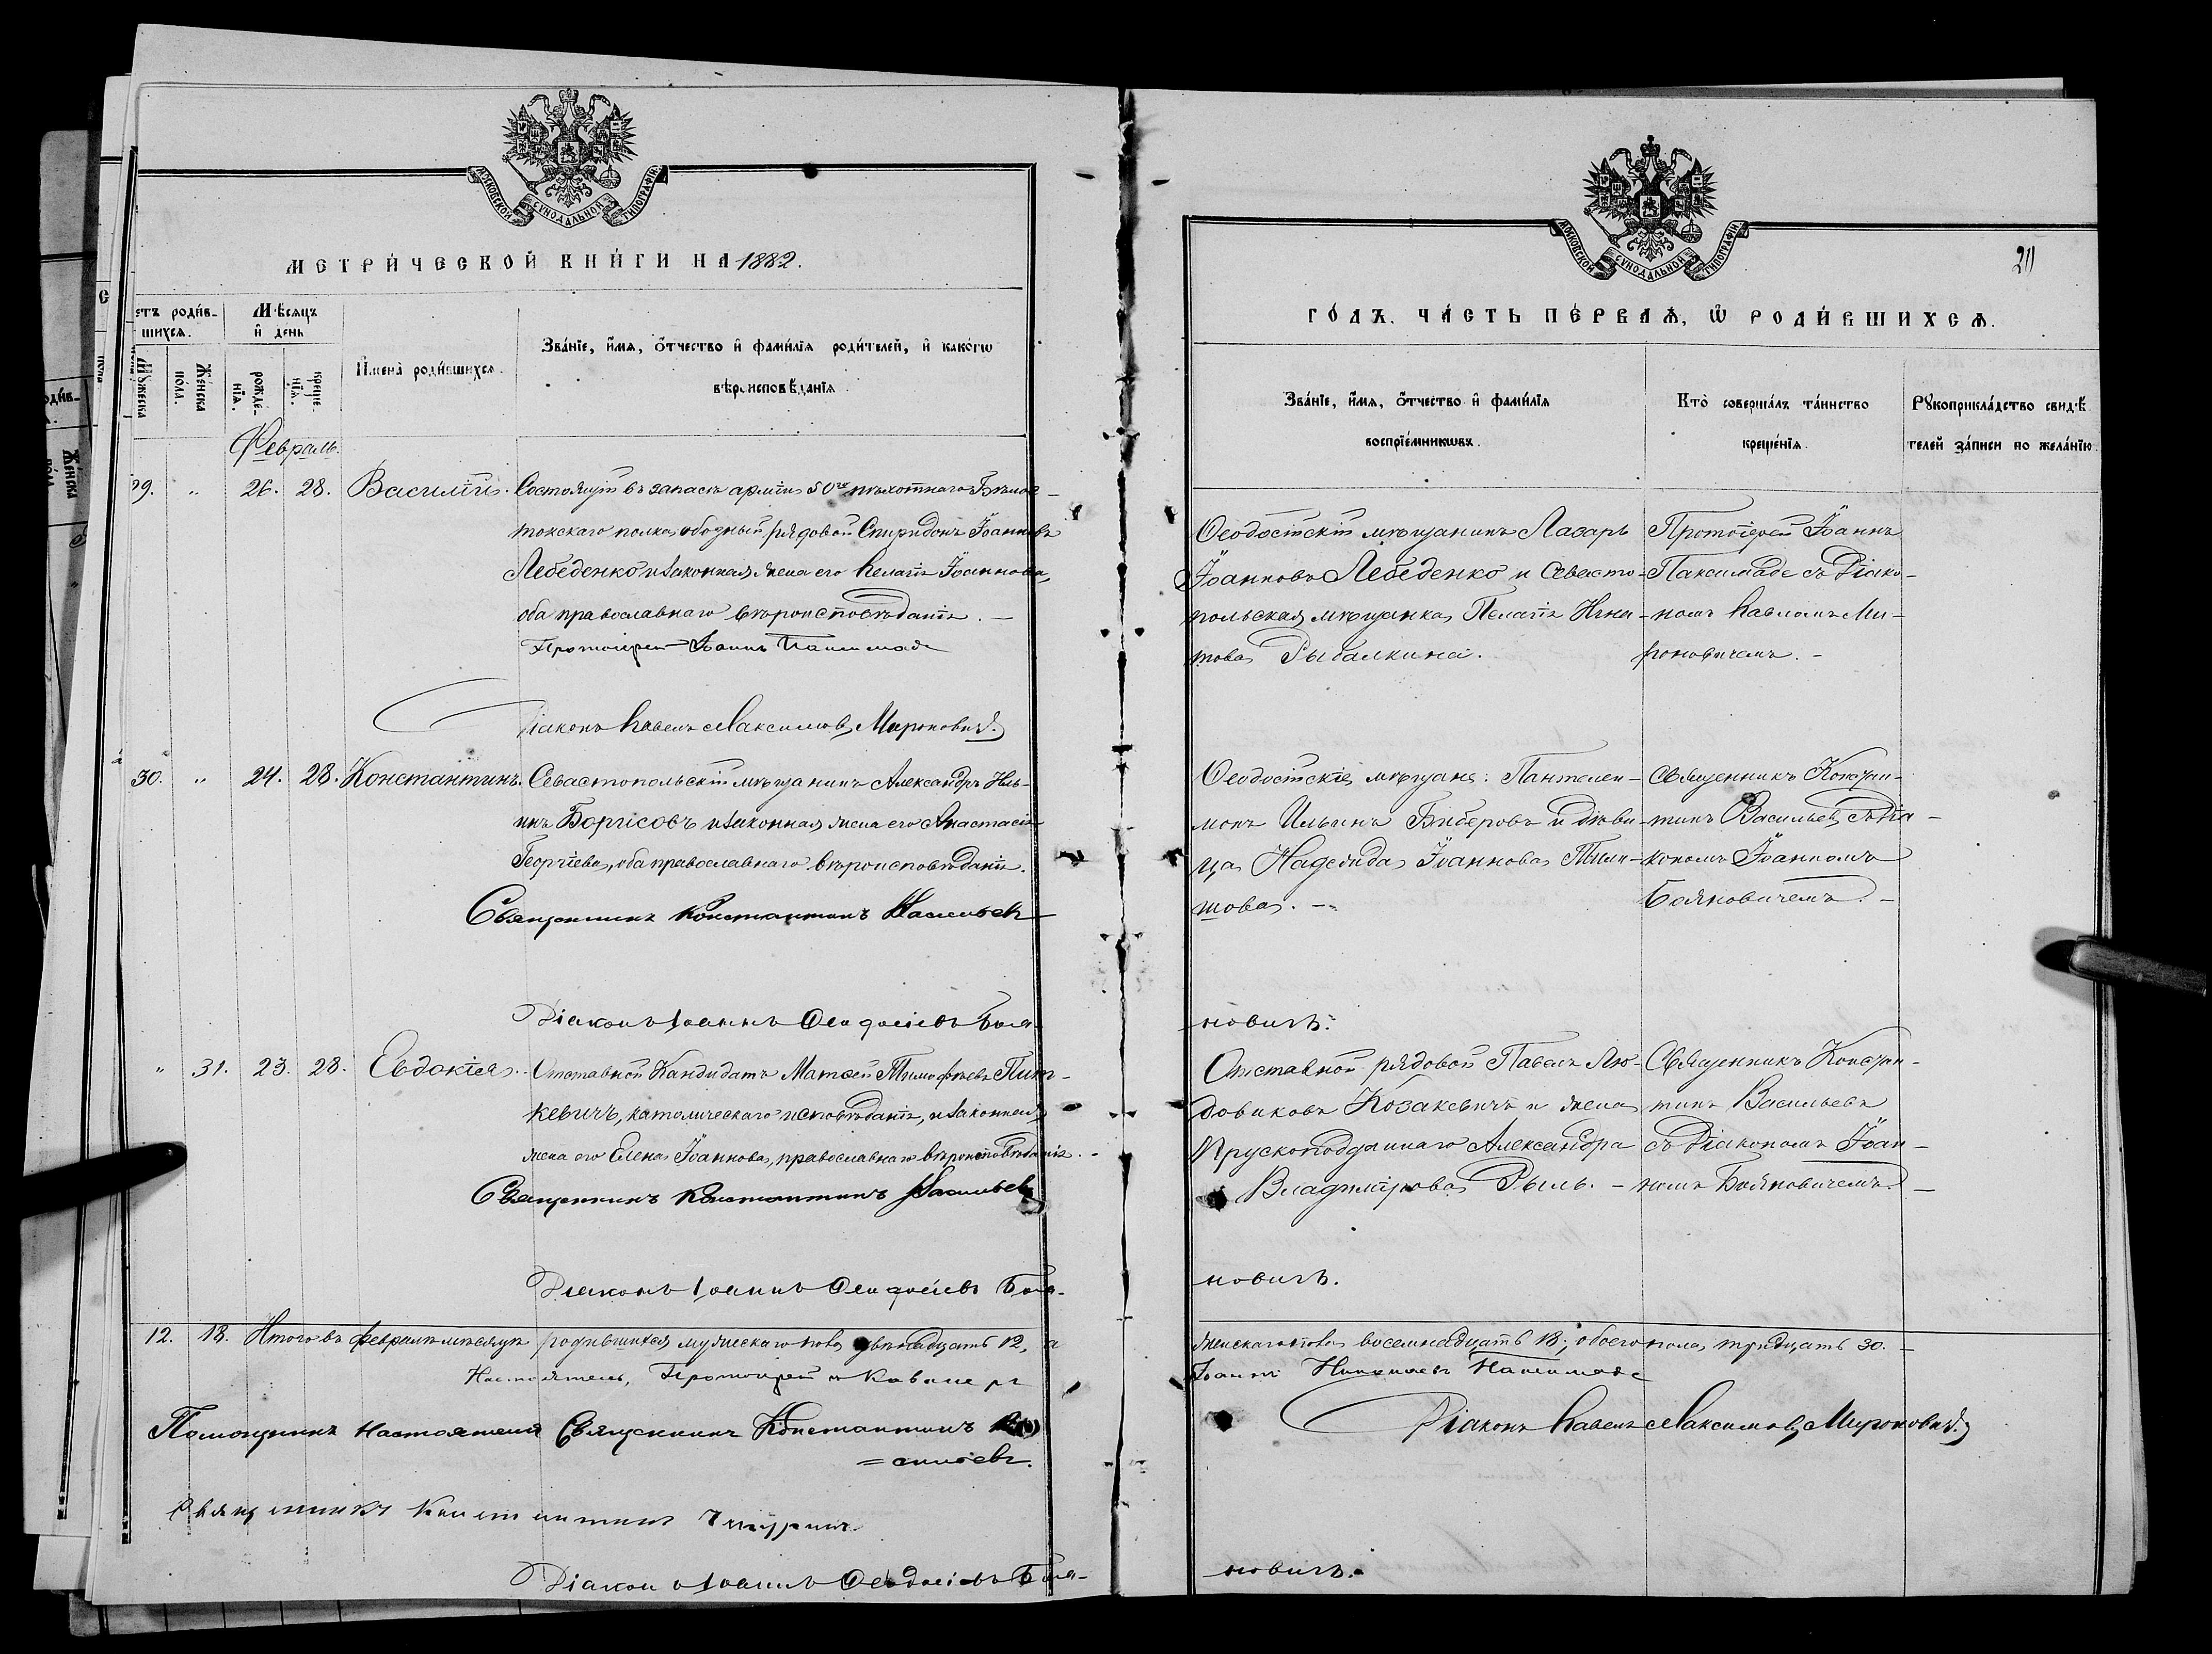 МОСКОВСКОЙ СУНОДАЛЬНОЙ ТИПОГРАФІИ
МЕТРИ́ЧЕСКОЙ КНИ́ГИ НА 1882.
етъ роди́в-
шихся.
Мѣсяцъ
и҆ день
Му́жеска
Же́нска
по́ла.
рожде́-
нїѧ.
креще́-
нїѧ.
И҆мена̀ роди́вшихсѧ.
Зва́нїе, и҆́мѧ, ѻ҆́тчество и҆ фами́лїѧ роди́телей, и҆ како́гѡ
вѣроисповѣ́данїѧ
Февраль.
29. " 26. 28. Василій. Состоящій въ запасѣ арміи 50го пѣхотнаго Бѣлос-
токскаго полка, рядовой Спиридонъ Іоанновъ
Лебеденко и законная жена его Пелагія Іоаннова,
оба православнаго вѣроисповѣданія. —
Протоіерей Іоаннъ
Діаконъ Павелъ Максимовъ Мироновичъ.
30. " 24. 28. Константинъ. Севастопольскій мѣщанинъ Александръ Иль-
инъ Борисовъ и законная жена его Анастасія
Георгіева, оба православнаго вѣроисповѣданія.
Священникъ Константинъ Васильевъ
Діаконъ Іоаннъ Ѳеодосіевъ Боя-
" 31. 23. 28. Евдокія. Отставной Кандидатъ Матѳей Тимофѣевъ
кевичъ, католическаго исповѣданія, и законная
жена его Елена Іоаннова, православнаго вѣроисповѣданія. -
Священникъ Константинъ Васильевъ
Діаконъ Іоаннъ Ѳеодосіевъ Боя-
12. 18. Итого въ февралѣ мѣсяцѣ родившихся мужескаго пола двѣнадцать 12, а
Настоятель, Протоіерей и Кавалеръ
Помощникъ Настоятеля Священникъ Константинъ Ва
= сильевъ.
Священникъ Константинъ
Діаконъ Іоаннъ Ѳеодосіевъ Боя-
МОСКОВСКОЙ СУНОДАЛЬНОЙ ТИПОГРАФІИ
211
ГО́ДЪ. ЧА́СТЬ ПЕ́РВАѦ, Ѡ҆ РОДИ́ВШИХСѦ.
Зва́нїе, и҆́мѧ, ѻ҆́тчество и҆ фами́лїѧ
воспрїе́мникѡвъ.
Кто̀ соверша́лъ та́инство
креще́нїѧ.
Рꙋкоприкла́дство свидѣ́-
телей за́писи по жела́нїю.
Ѳеодосійскій мѣщанинъ Лазарь
Іоанновъ Лебеденко и Севасто-
польская мѣщанка Пелагія Игна-
това Рыбалкина.
Протоіерей Іоаннъ
съ Діако-
номъ Павломъ Ми-
роновичемъ. -
Ѳеодосійскіе мѣщане: Пантелей-
монъ Ильинъ Биберовъ и дѣви-
ца Надежда Іоаннова
шова. -
Священникъ Констан-
тинъ Васильевъ съ Діа-
кономъ Іоанномъ
Бояновичемъ. -
новичъ.
Отставной рядовой Павелъ Лю-
довиковъ Козакевичъ и жена
Прускоподданнаго Александра
Владимірова Рыль. -
Священникъ Констан-
тинъ Васильевъ
съ Діакономъ Іоан-
номъ Бояновичемъ. -
новичъ.
женскаго пола восемнадцать 18; обоего пола тридцать 30. -
Іоаннъ
Діаконъ Павелъ Максимовъ Мироновичъ.
новичъ.